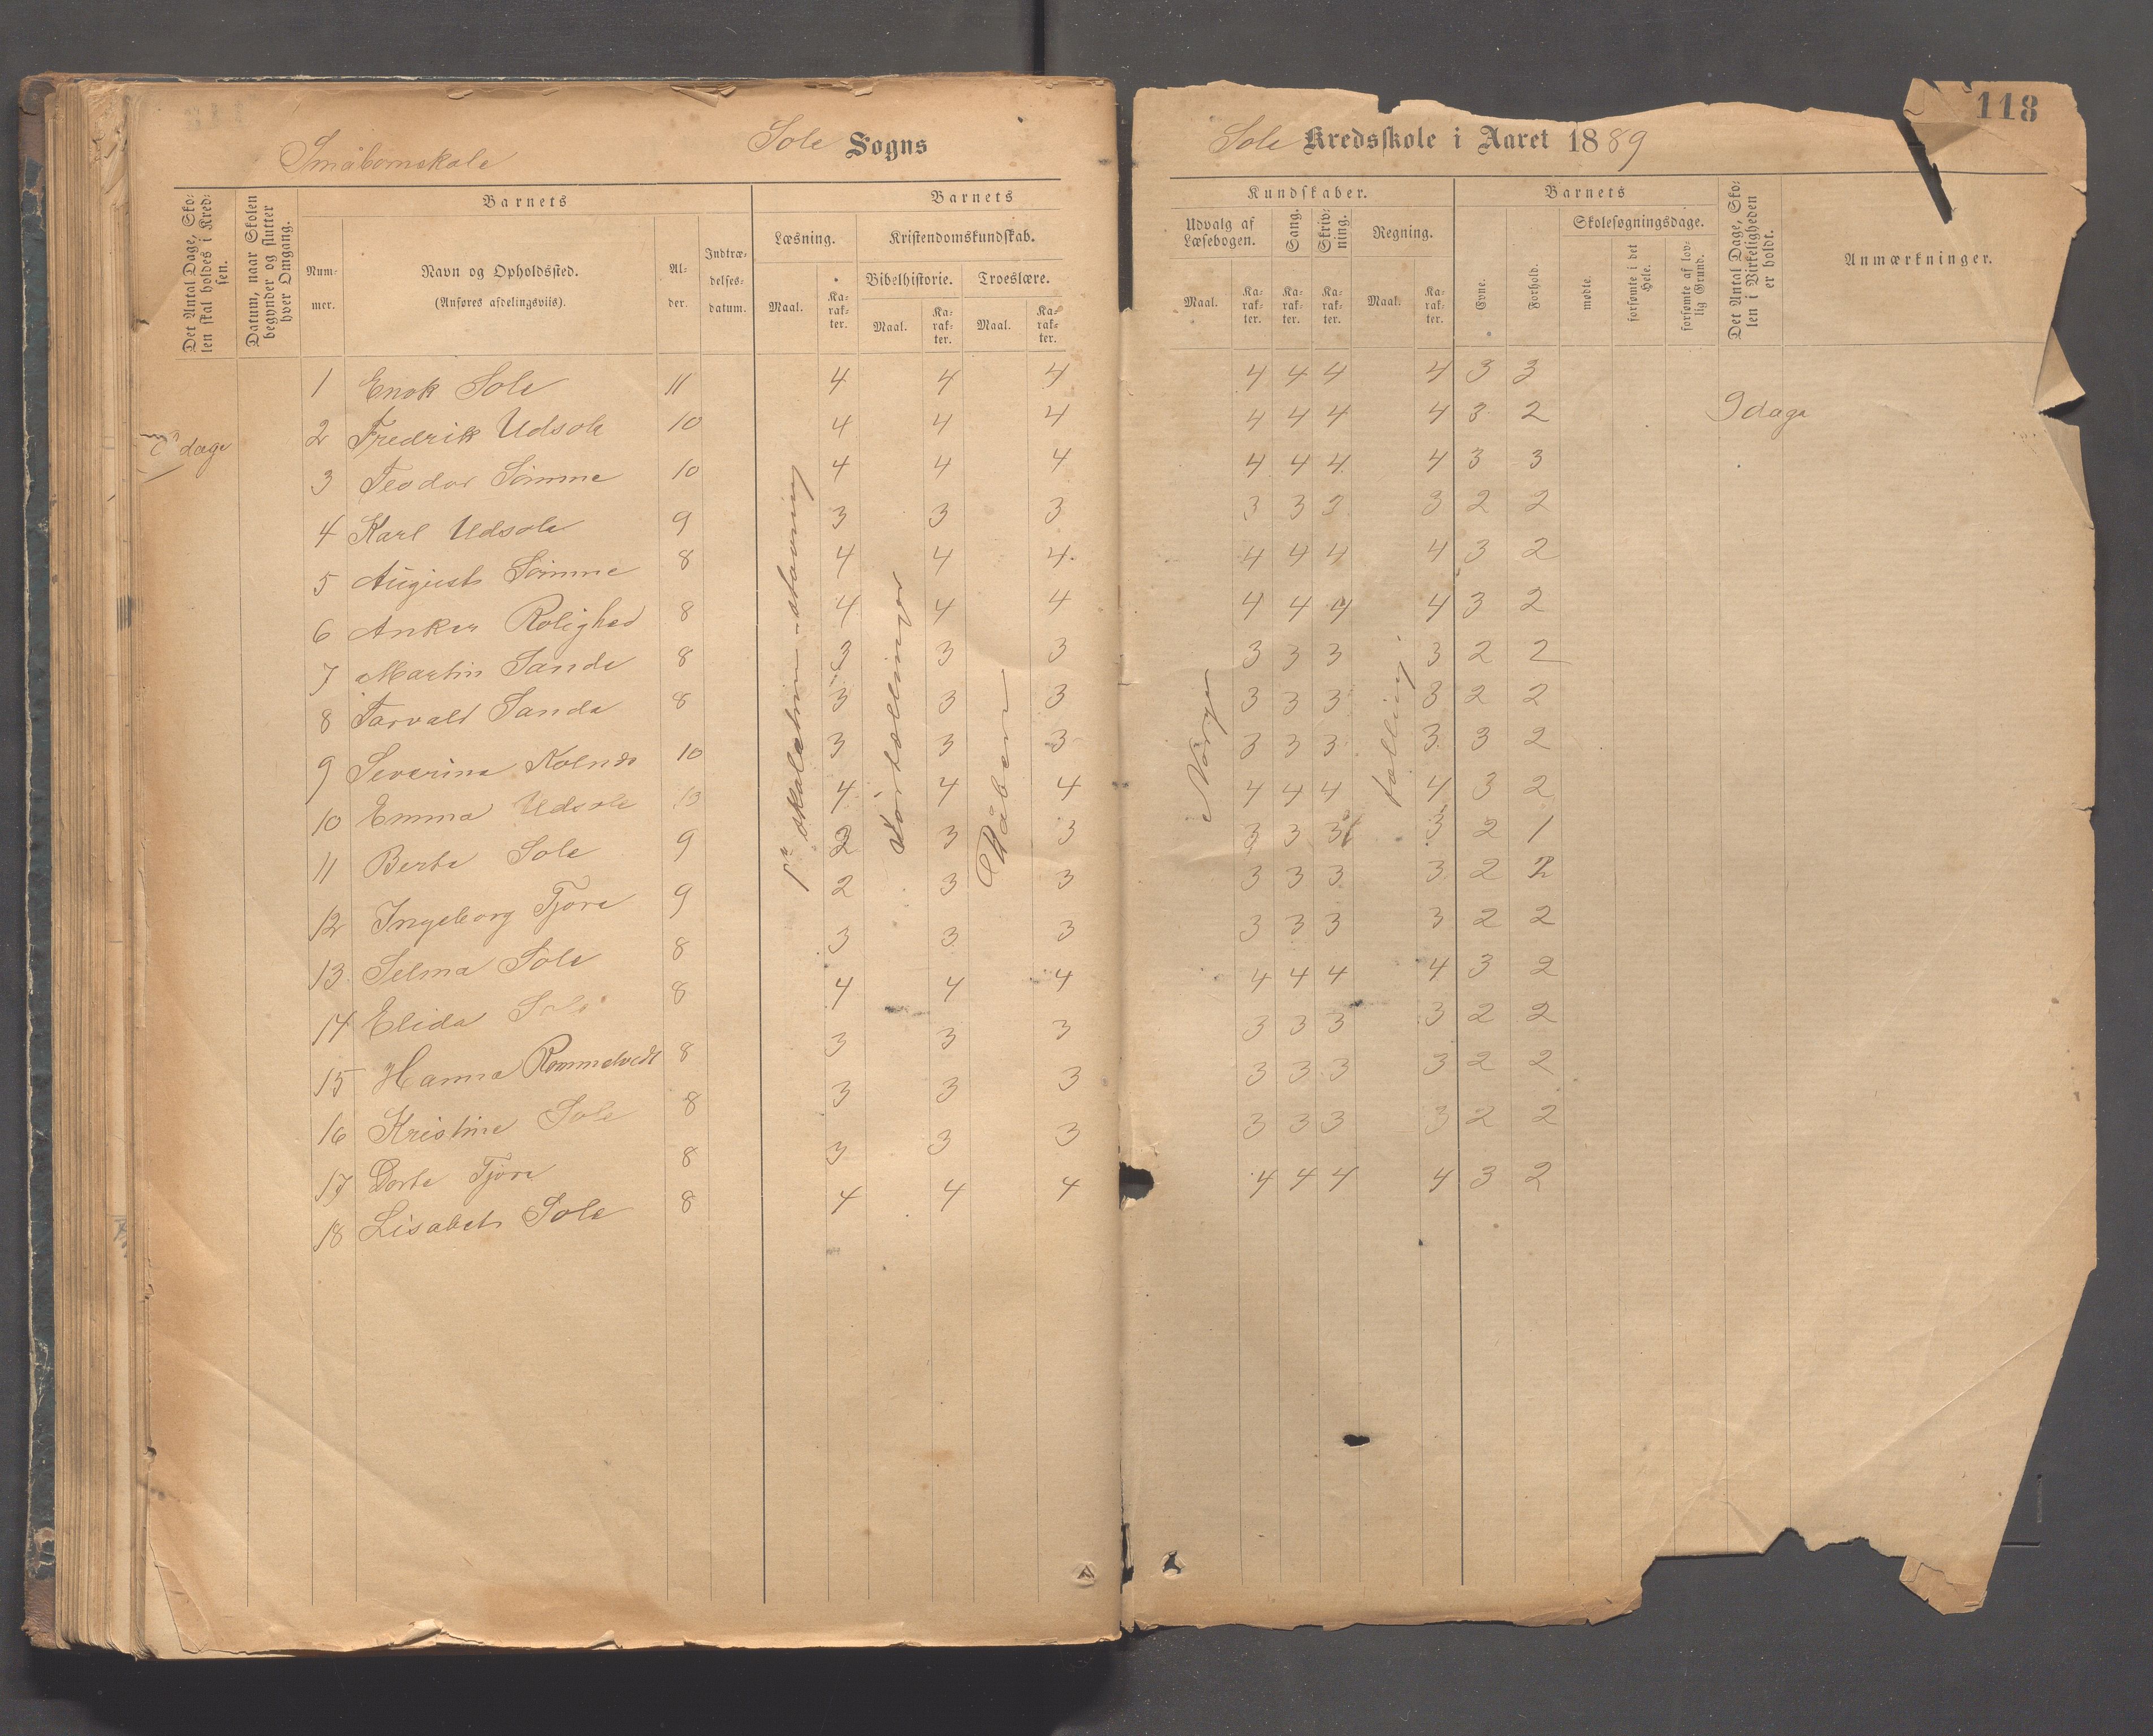 118
Småbornskole
Sole Sogns
Sole Kredsskole i Aaret 1889
Det Antal Dage, Skolen skal holdes i Kredsen.
Datum, naar Skolen begynder og slutter hver Omgang.
Barnets
Nummer.
Navn og Opholdssted.
(Anføres afdelingsviis).
Alder.
Indtrædelsesdatum.
Barnets
Læsning.
Maal.
Karakter.
Kristendomskundskab.
Bibelhistorie.
Maal.
Karakter.
Troeslære.
Maal.
Karakter.
Kundskaber.
Udvalg af Læsebogen.
Maal.
Karakter.
Sang.
Karakter.
Skrivning.
Karakter.
Regning.
Maal.
Karakter.
Barnets
Evne.
Forhold.
Skolesøgningsdage.
mødte.
forsømte i det Hele.
forsømte af lovlig Grund.
Det Antal Dage, Skolen i Virkeligheden er holdt.
Anmærkninger.
1 Enok Sole 11 4 4 4 4 4 4 4 3 3
2 Fredrik Udsole 10 4 4 4 4 4 4 4 3 2 9 dage
dage
3 Teodor Sömme 10 4 4 4 4 4 4 4 3 3
4 Karl Udsole 9 3 3 3 3 3 3 3 2 2
5 August Sömme 8 4 4 4 4 4 4 4 3 2
6 Anker Rolighed 8 4 4 4 4 4 4 4 3 2
7 Martin Sande 8 3 3 3 3 3 3 3 2 2
8 Tarvald Sande 8 3 3 3 3 3 3 3 2 2
9 Severine 10 3 3 3 3 3 3 3 3 2
10 Emma Udsole 4 4 4 4 4 4 4 3 2
11 Berta Sole 9 3 3 3 3 3 2 1
12 Ingeborg Tjora 9 2 3 3 3 3 3 3 2 2
13 Selma Sole 8 3 3 3 3 3 3 3 2 2
14 Elida Sole 8 4 4 4 4 4 4 4 3 2
15 Hanna Rommetvedt 8 3 3 3 3 3 3 3 2 2
16 Kristine Sole 8 3 3 3 3 3 3 3 2 2
17 Dorte Tjora 8 3 3 3 3 3 3 3 2 2
18 Lisabet Sole 8 4 4 4 4 4 4 4 3 2
stavning
fortællinger
Norge